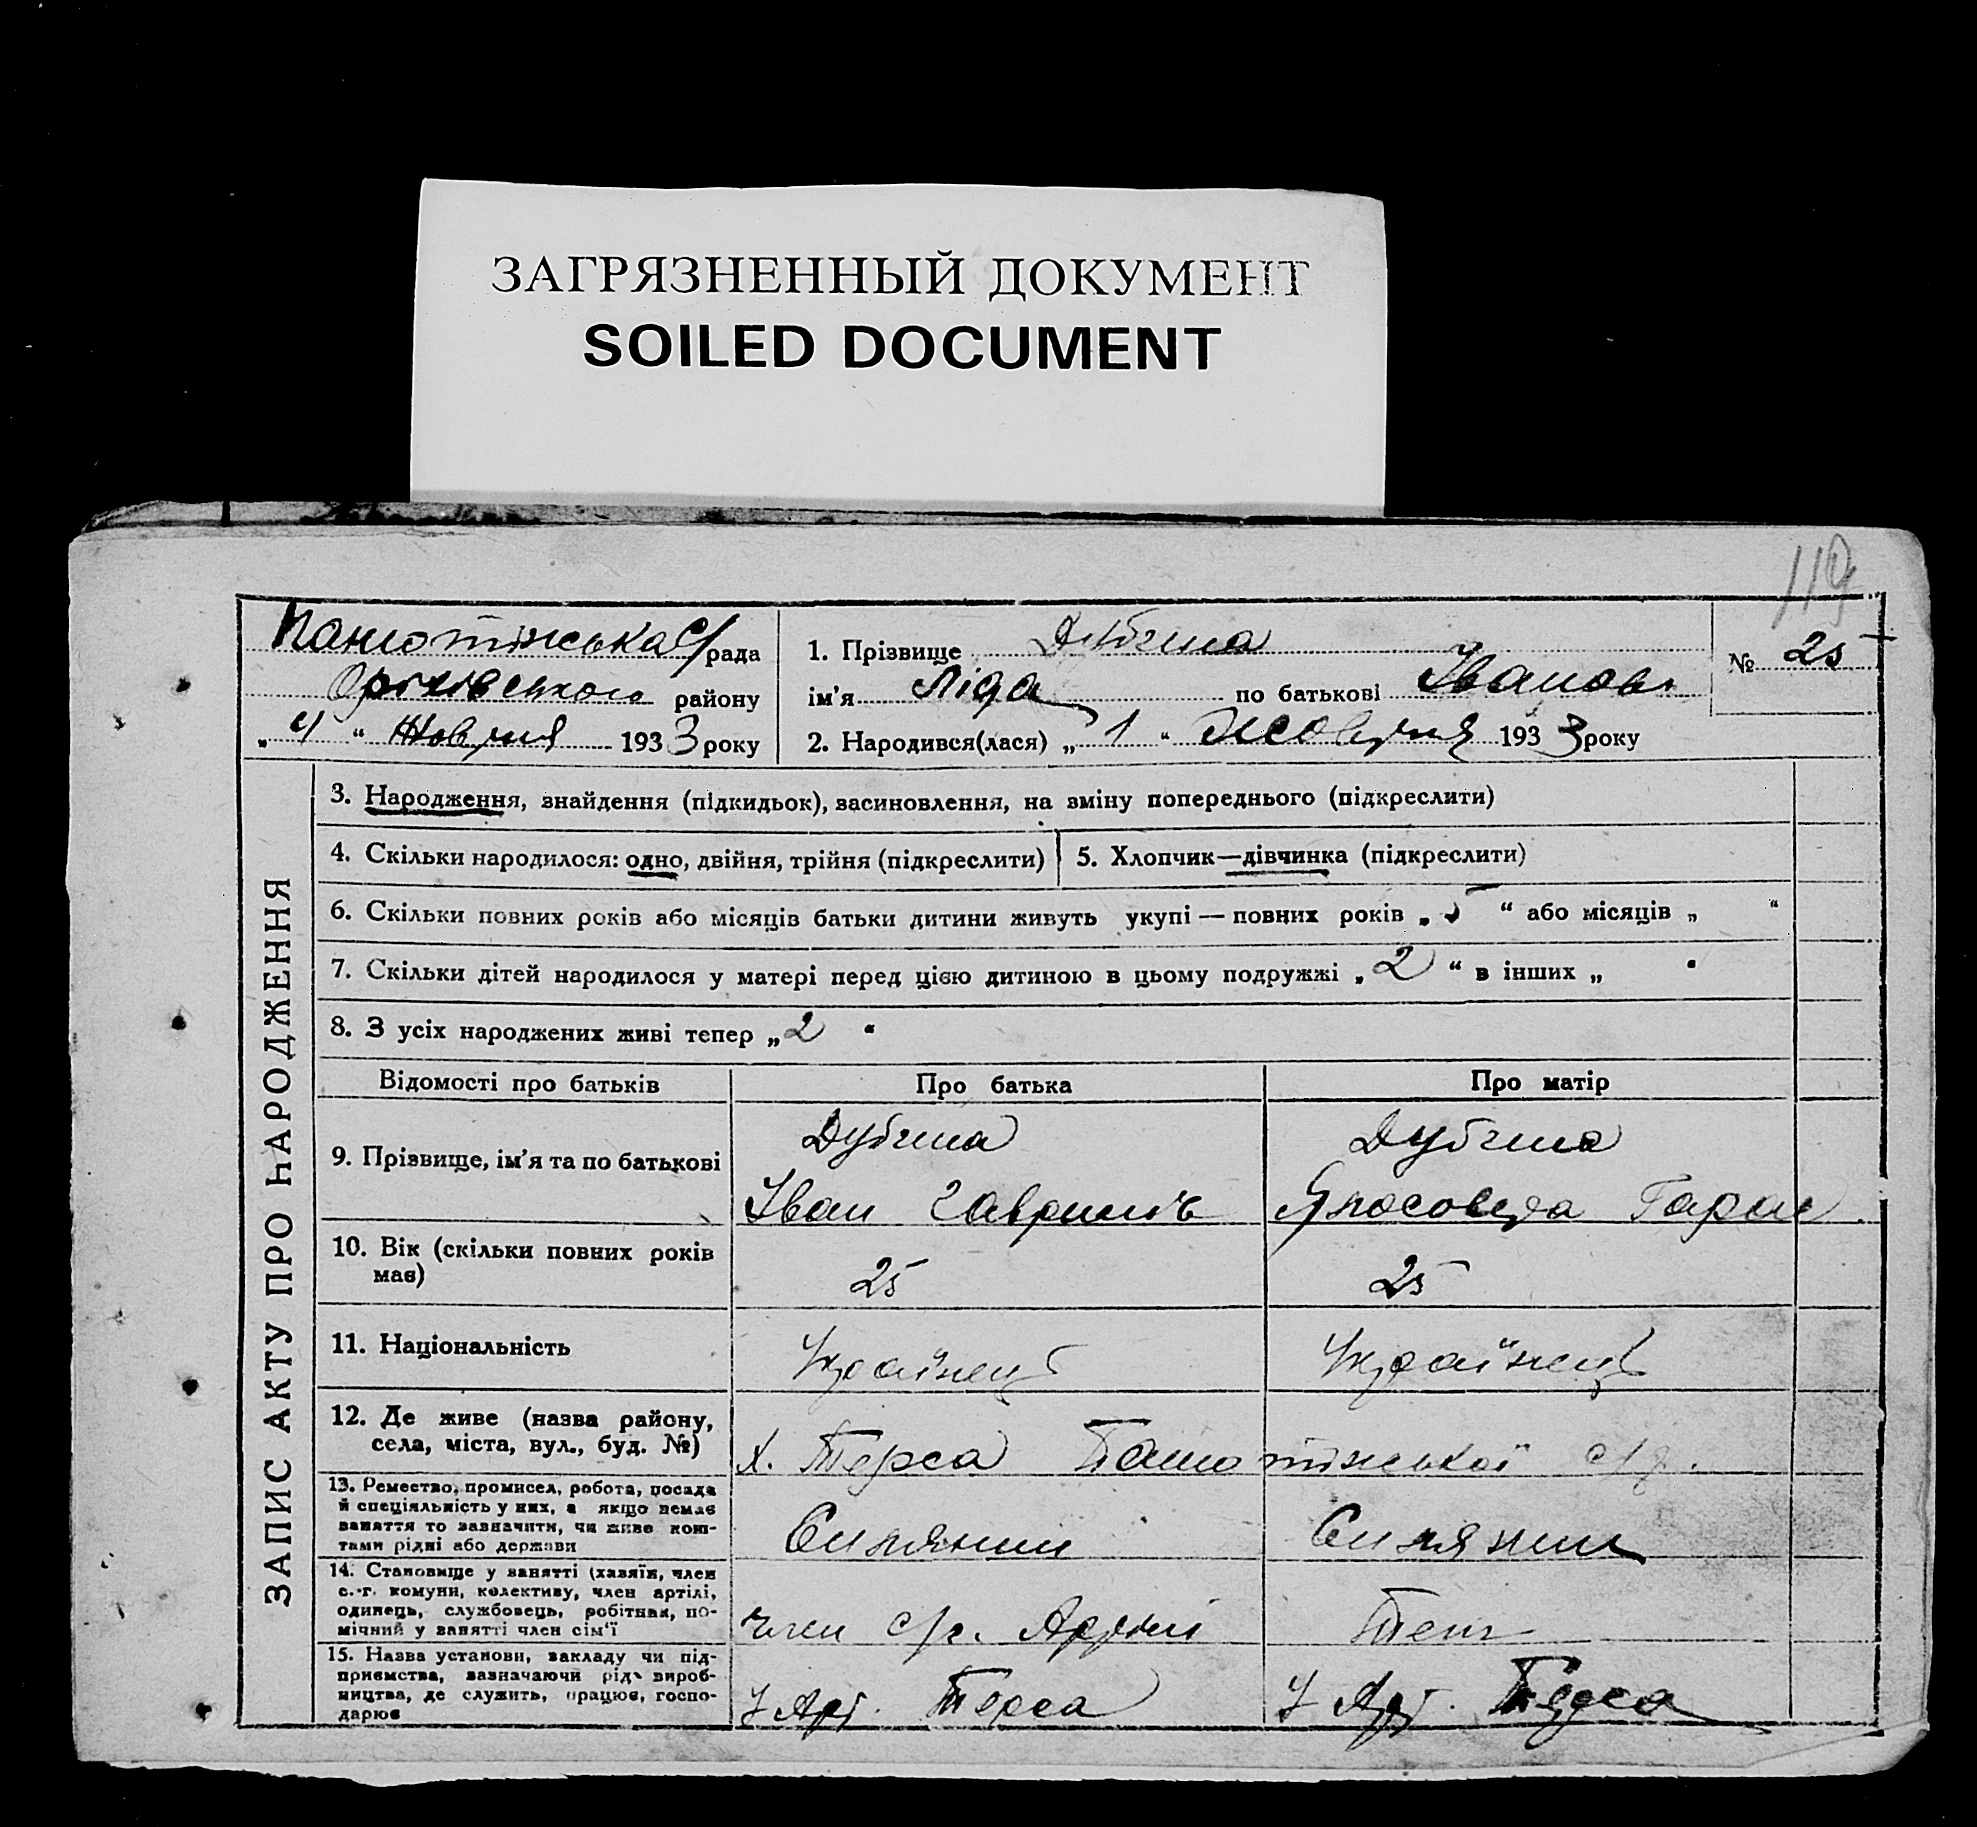 ЗАГРЯЗНЕННЫЙ ДОКУМЕНТ
SOILED DOCUMENT
119
рада
Оріхівського району
„4“ Жовтня 1933 року
1. Прізвище Дубина
ім'я Ліда по батькові Іванов.
2. Народився(лася) „1“ Жовтня 1933 року
№ 25
ЗАПИС АКТУ ПРО НАРОДЖЕННЯ
3. Народження, знайдення (підкидьок), засиновлення, на зміну попереднього (підкреслити)
4. Скільки народилося: одно, двійня, трійня (підкреслити)
5. Хлопчик—дівчинка (підкреслити)
6. Скільки повних років або місяців батьки дитини живуть укупі — повних років „5“ або місяців „ “
7. Скільки дітей народилося у матері перед цією дитиною в цьому подружжі „2“ в інших „ “
8. З усіх народжених живі тепер „2“
Відомості про батьків Про батька Про матір
9. Прізвище, ім'я та по батькові
Дубина
Іван Гаврилів
Дубина
Гарас
10. Вік (скільки повних років
має)
25
25
11. Національність
Українець
Українець
12. Де живе (назва району,
села, міста, вул., буд. №)
х. Терса с/р.
13. Ремество, промисел, робота, посада
й спеціяльність у них, а якщо немає
заняття то зазначити, чи живе кош-
тами рідні або держави
Силянин
Силянин
14. Становище у занятті (хазяїн, член
с.-г. комуни, колективу, член артілі,
одинець, службовець, робітник, по-
мічний у занятті член сім'ї
член с/г. Артілі
Теж
15. Назва установи, закладу чи під-
приємства, зазначаючи рід вироб-
ництва, де служить, працює, госпо-
дарює
У Арт. Терса
У Арт. Терса